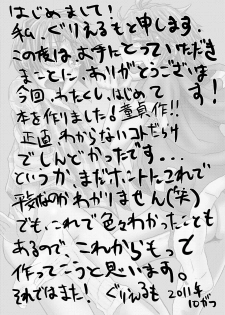 はじめまして!
私、ぐりえるもと申します。
この度は、お手にとっていただき
まことに、ありがとうございま
す!
今回、わたくし、はじめて
本を作りました!童貞作!!
正直わからないコトだらけ
でしんどかったです...
というか、まだホントにこれで
平気なのかわかりません(笑)
でも、これで色々わかったことも
あるので、これからもって
作ってこうと思います。
それではまた! ぐりえるも 2011年
10がつ